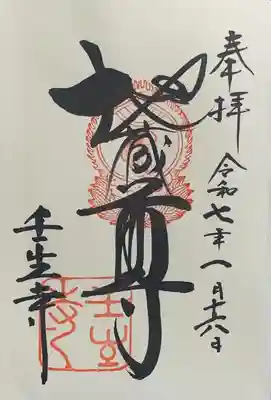 奉拝
令和七年一月十六日
地蔵尊
壬生寺